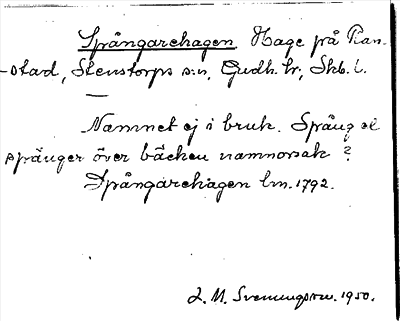 Språngarehagen Hage på Ran-
stad, Stenstorps s:n, Gudh. hr, Skb. l.
Namnet ej i bruk. Spång el
spänger över bäcken namnorsak?
Spångarehagen lm. 1792.
J. M. Svenungsson. 1950.